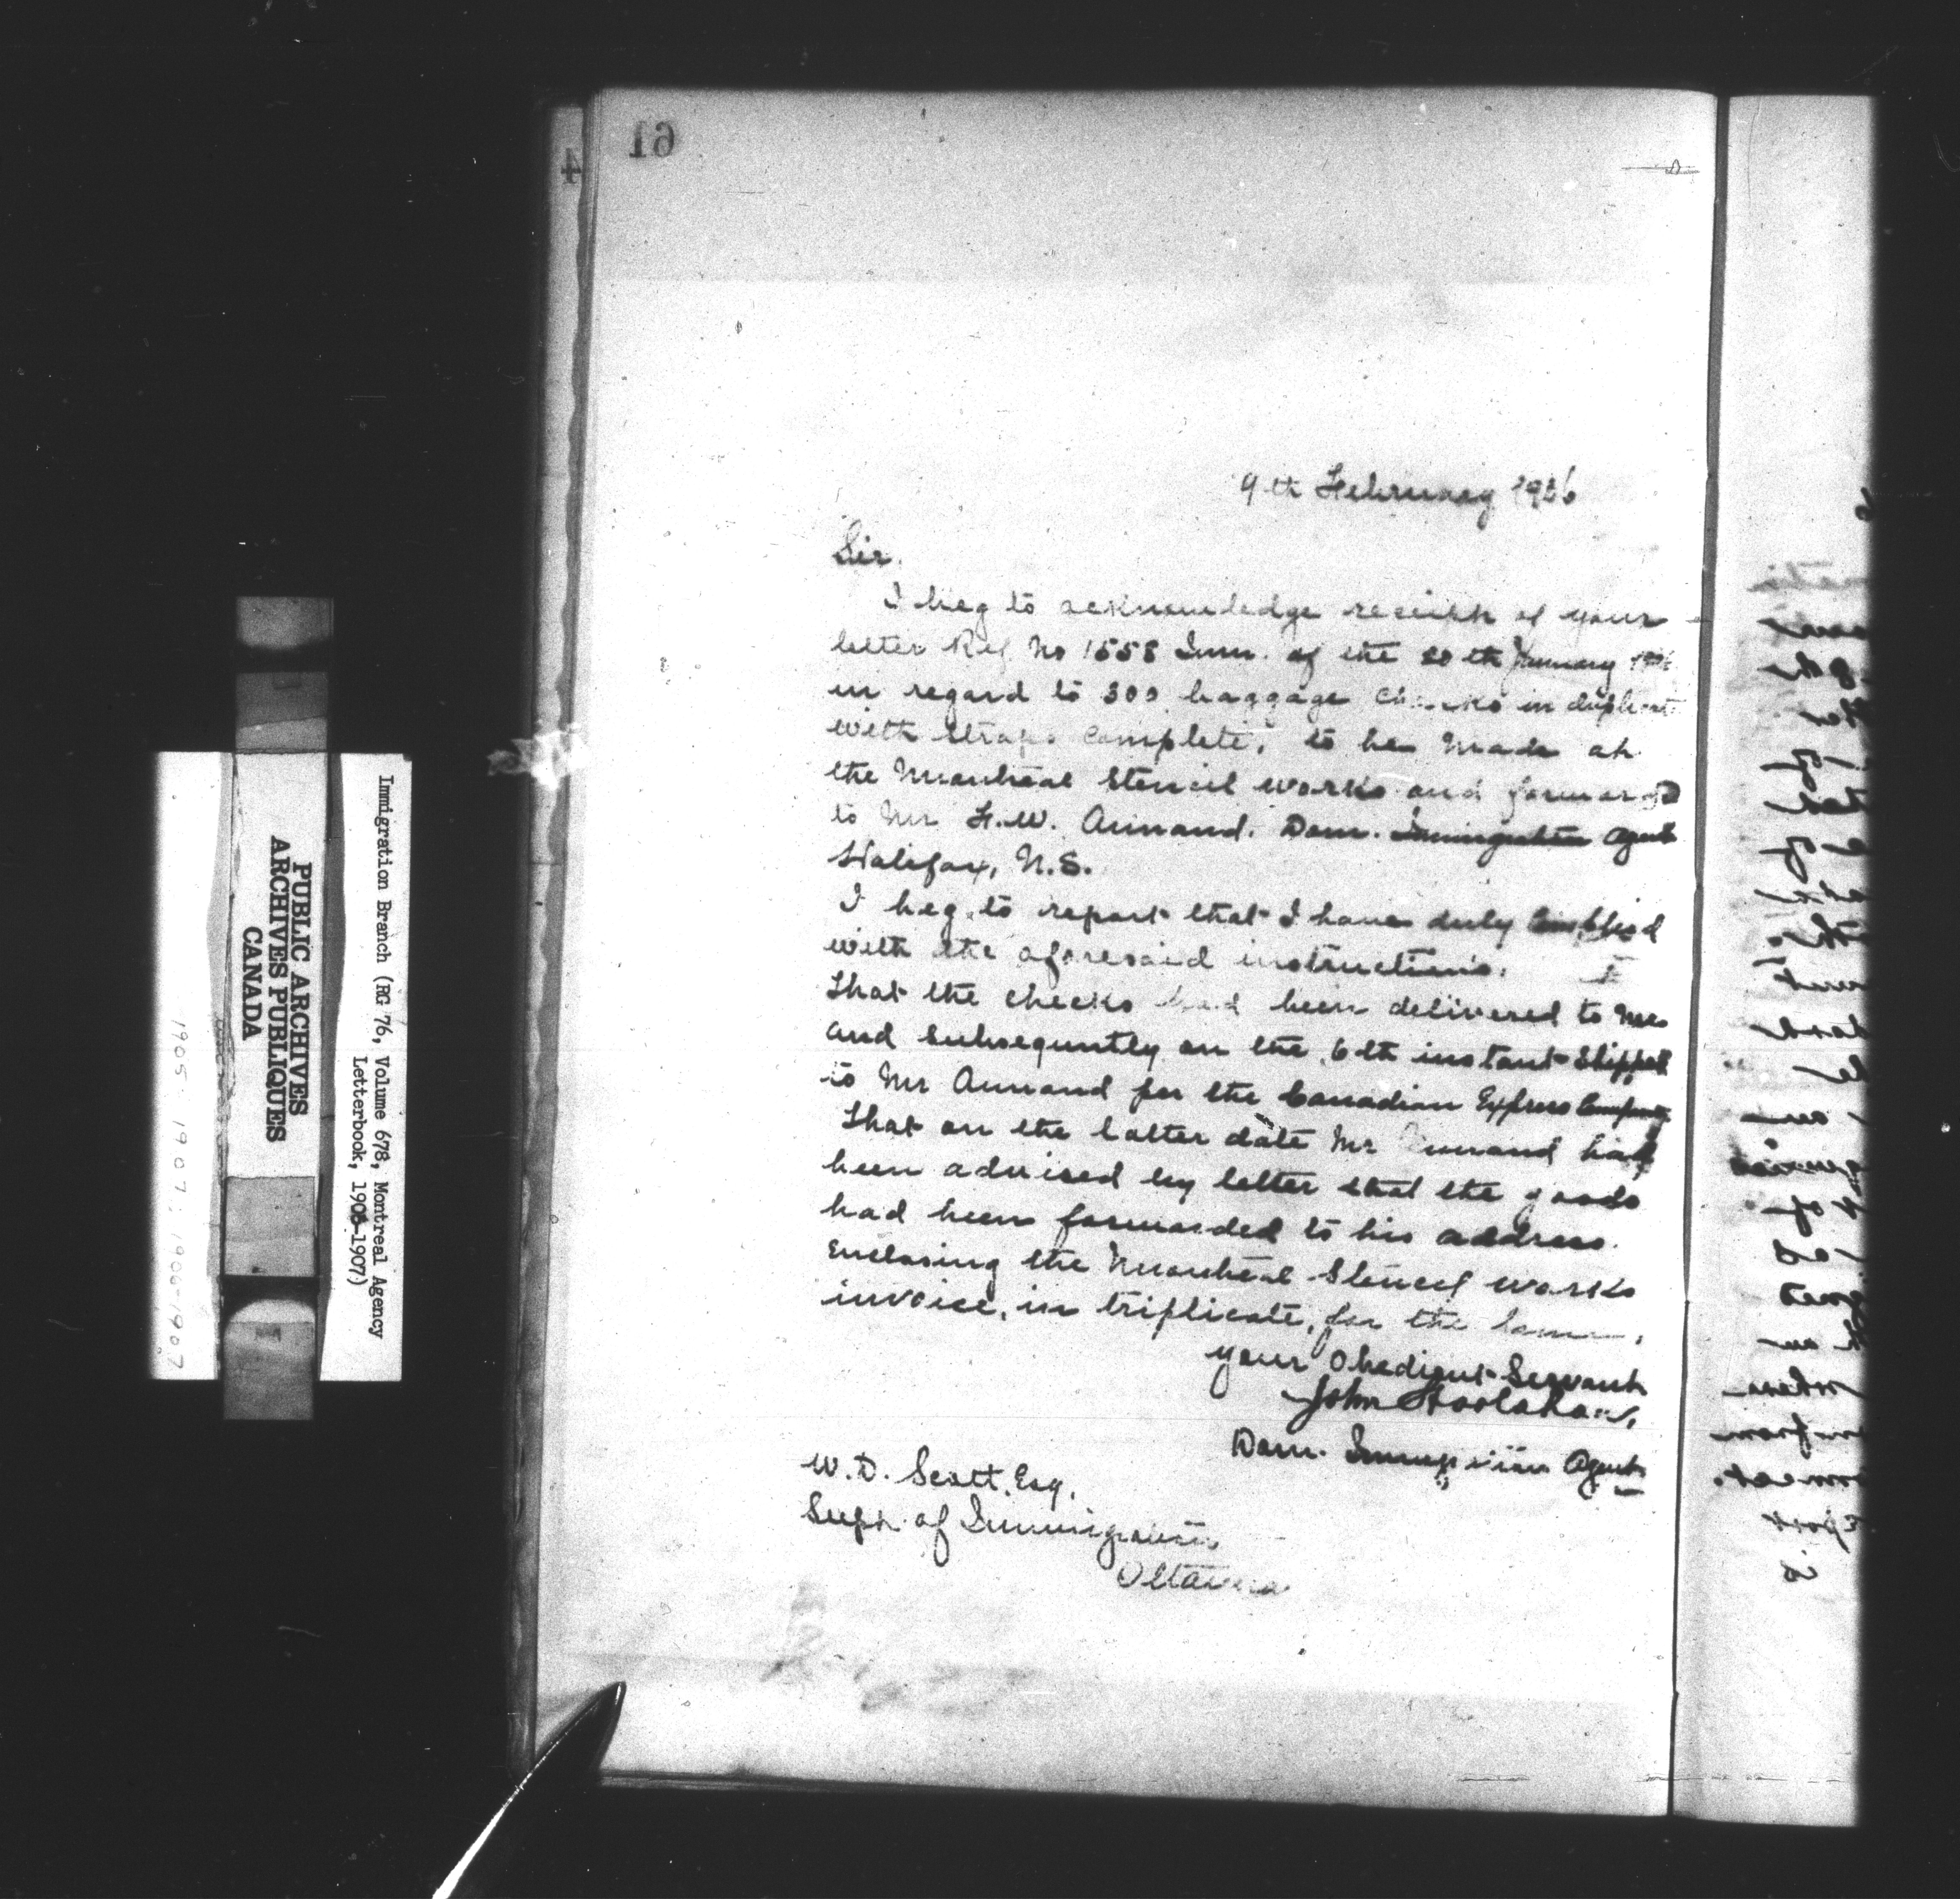 61
4
9th February 1906
Sir.
I beg to acknowledge receipt of your
letter Ref. No 1558 Imm. of the 20th January 1906
in regard to 300 baggage checks in duplicate
with straps complete, to be made at
the Montreal Stencil works and forward
to Mr F.W. Annand. Dom. Immigration Agent
Halifax, N.S.
I beg to report that I have duly complied
with the aforesaid instructions.
That the checks had been delivered to me
and subsequntly on the 6th instant shipped
to Mr Annand per the Canadian Express Company
That on the latter date Mr Annand had
been advised by letter that the goods
had been forwarded to his address.
Enclosing the Montreal Stencil works
invoice, in triplicate, for the same.
your Obedient Servant
John Hoolahan,
Dom. Immigration Agent
W.D. Scott, Esq,
Supt. of Immigration
Ottawa
PUBLIC ARCHIVES
ARCHIVES PUBLIQUES
CANADA
Immigration Branch (RG 76, Volume 678, Montreal Agency
Letterbook, 1905-1907)
1905-1907: 1906-1907